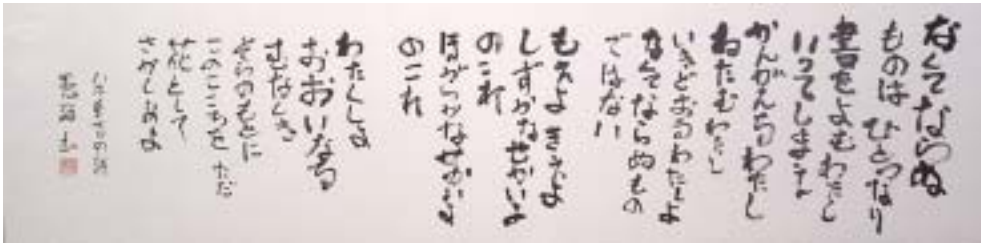 なくてならぬ
ものは ひとつなり
書をよむわたし
いってしまえ
かんがえるわたし
ねたむわたし
いきどおるわたしよ
なくてならぬもの
ではない
もえよ きえよ
しずかなせかいよ
のこれ
ほがらかなせかいよ
のこれ
わたくしよ
おおいなる
むなしき
そらのもとに
このこころを ただ
花として
八木重吉の詩